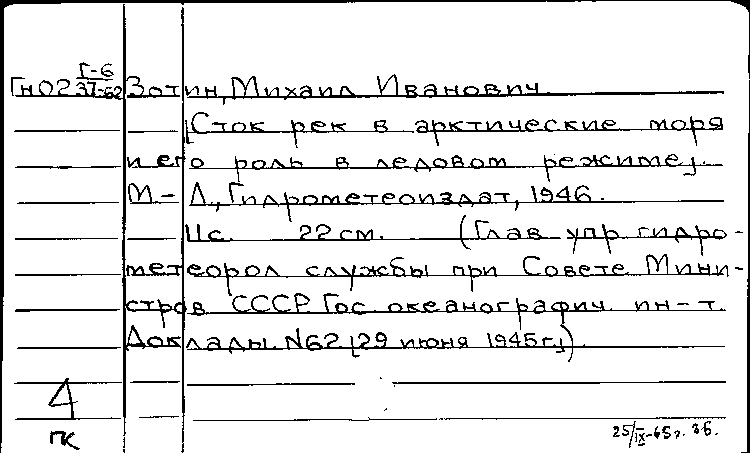 Г-6
Гн023 37-62 Зотин, Михаил Иванович.
[Сток рек в арктические моря
и его роль в ледовом режиме].
М-Л., Гидрометеоиздат, 1946.
11с. 22 см. (Глав упр гидро-
метеорол службы при Совете Мини-
стров СССР. Гос океанографич. ин-т.
Доклады. №62 [29 июня 1945г.])
4
ПК
25/IX-65г. ЗБ.